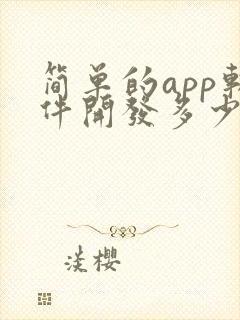 简单的app軟
件開發多少
淡櫻